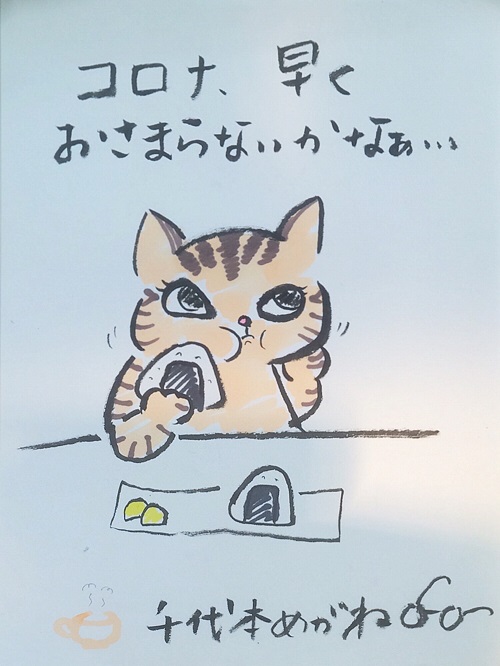 コロナ、早く
おさまらないかなぁ…
千代本めがね